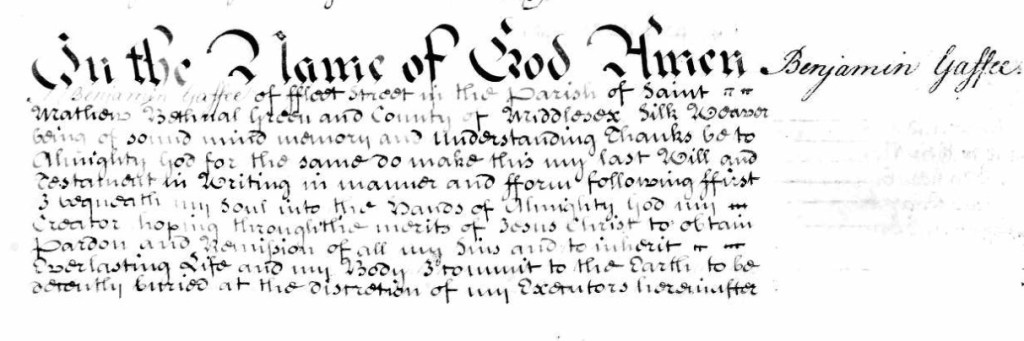 In the Name of God Amen
Benjamin Gaffee
I Benjamin Gaffee of ffleet Street in the Parish of Saint
Mathew Bethnal Green and County of Middlesex Silk Weaver
being of sound mind memory and Understanding Thanks be to
Almighty God for the same do make this my last Will and
Testament in Writing in manner and fform following ffirst
I bequeath my Soul into the Hands of Almighty God my
Creator hoping through the merits of Jesus Christ to obtain
Pardon and Remission of all my Sins and to inherit
Everlasting Life and my Body I commit to the Earth to be
decently buried at the discretion of my Executors hereinafter